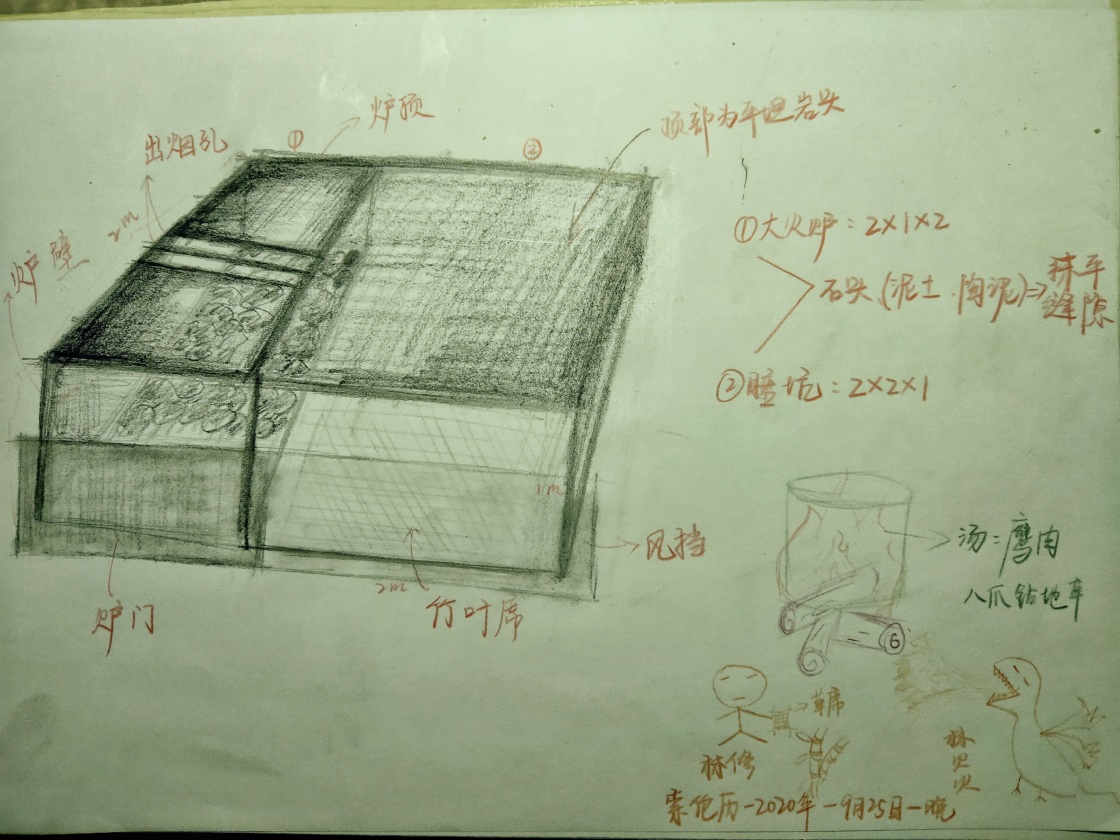 炉顶
①
②
顶部为平坦岩头
出烟孔
2m
炉壁
①大火炉：2×1×2
石头(泥土、陶泥)⇒抹平
缝隙
②睡坑：2×2×1
1m
风挡
2m
竹叶席
炉门
汤：鹰肉
八爪钻地车
⑥
草席
林修
林火火
索伦历-2020年-9月25日-晚